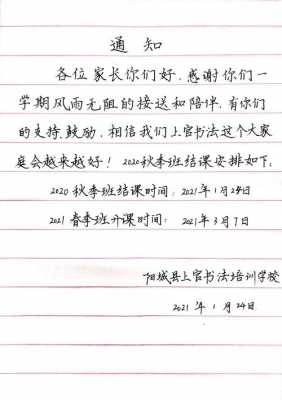 通知
各位家长你们好,感谢你们一
学期风雨无阻的接送和陪伴,有你们
的支持、鼓励,相信我们上官书法这个大家
庭会越来越好! 2020秋季班结课安排如下:
2020秋季班结课时间:2021年1月24日
2021春季班开课时间: 2021年3月7日
阳城县上官书法培训学校
2021年1月24日